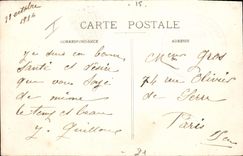 21 octobre
1914
CARTE POSTALE
CORRESPONDANCE
ADRESSE
je suis en bonne
Santé et désire
que vous soyez
de même
le temps est beau
J. Guillon
Mme Gros
74 rue Olivier
de Serre
Paris